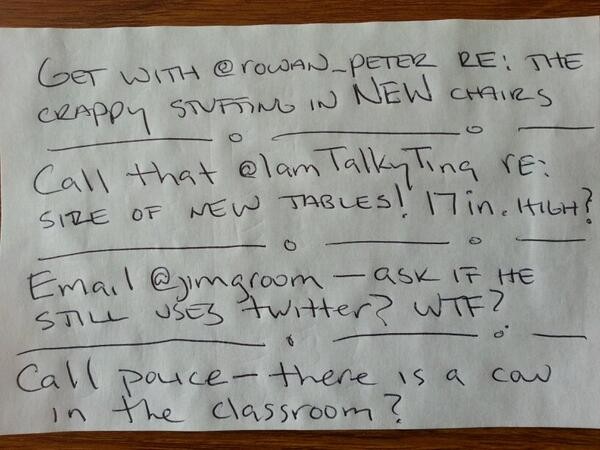 GET WITH @rowan_PETER RE: THE
CRAPPY STUFFING IN NEW CHAIRS
Call that @IamTalkyTina re:
SIZE OF NEW TABLES! 17 in. HIGH?
Email @jimgroom — ask IF HE
STILL USES twitter? WTF?
Call police — there is a cow
in the classroom?